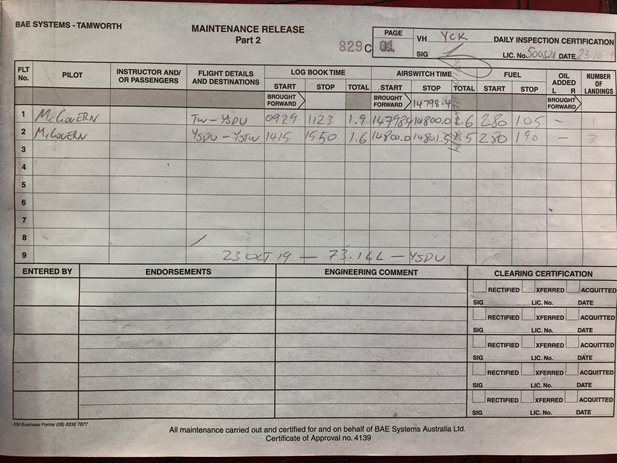 BAE SYSTEMS - TAMWORTH
MAINTENANCE RELEASE
Part 2
829 C
PAGE 01
VH YCK
SIG
DAILY INSPECTION CERTIFICATION
LIC. No. DATE 23-10-
FLT No. PILOT INSTRUCTOR AND/ OR PASSENGERS FLIGHT DETAILS AND DESTINATIONS LOG BOOK TIME AIRSWITCH TIME FUEL OIL ADDED L R NUMBER OF LANDINGS
START STOP TOTAL START STOP TOTAL START STOP
BROUGHT FORWARD BROUGHT FORWARD 14798.4 BROUGHT FORWARD
1 McGOVERN TW - YSDU 0929 1123 1.9 14798.4 14800.0 1.6 280 105 - 1
2 McGOVERN YSDU - YSTW 1415 1550 1.6 14800.0 14801.5 1.5 280 190 - 3
3
4
5
6
7
8
9 23 OCT 19 - 73.16L - YSDU
ENTERED BY ENDORSEMENTS ENGINEERING COMMENT CLEARING CERTIFICATION
RECTIFIED XFERRED ACQUITTED
SIG LIC. No. DATE
RECTIFIED XFERRED ACQUITTED
SIG LIC. No. DATE
RECTIFIED XFERRED ACQUITTED
SIG LIC. No. DATE
RECTIFIED XFERRED ACQUITTED
SIG LIC. No. DATE
RECTIFIED XFERRED ACQUITTED
SIG LIC. No. DATE
KM Business Forms (08) 8336 7877
All maintenance carried out and certified for and on behalf of BAE Systems Australia Ltd.
Certificate of Approval no. 4139